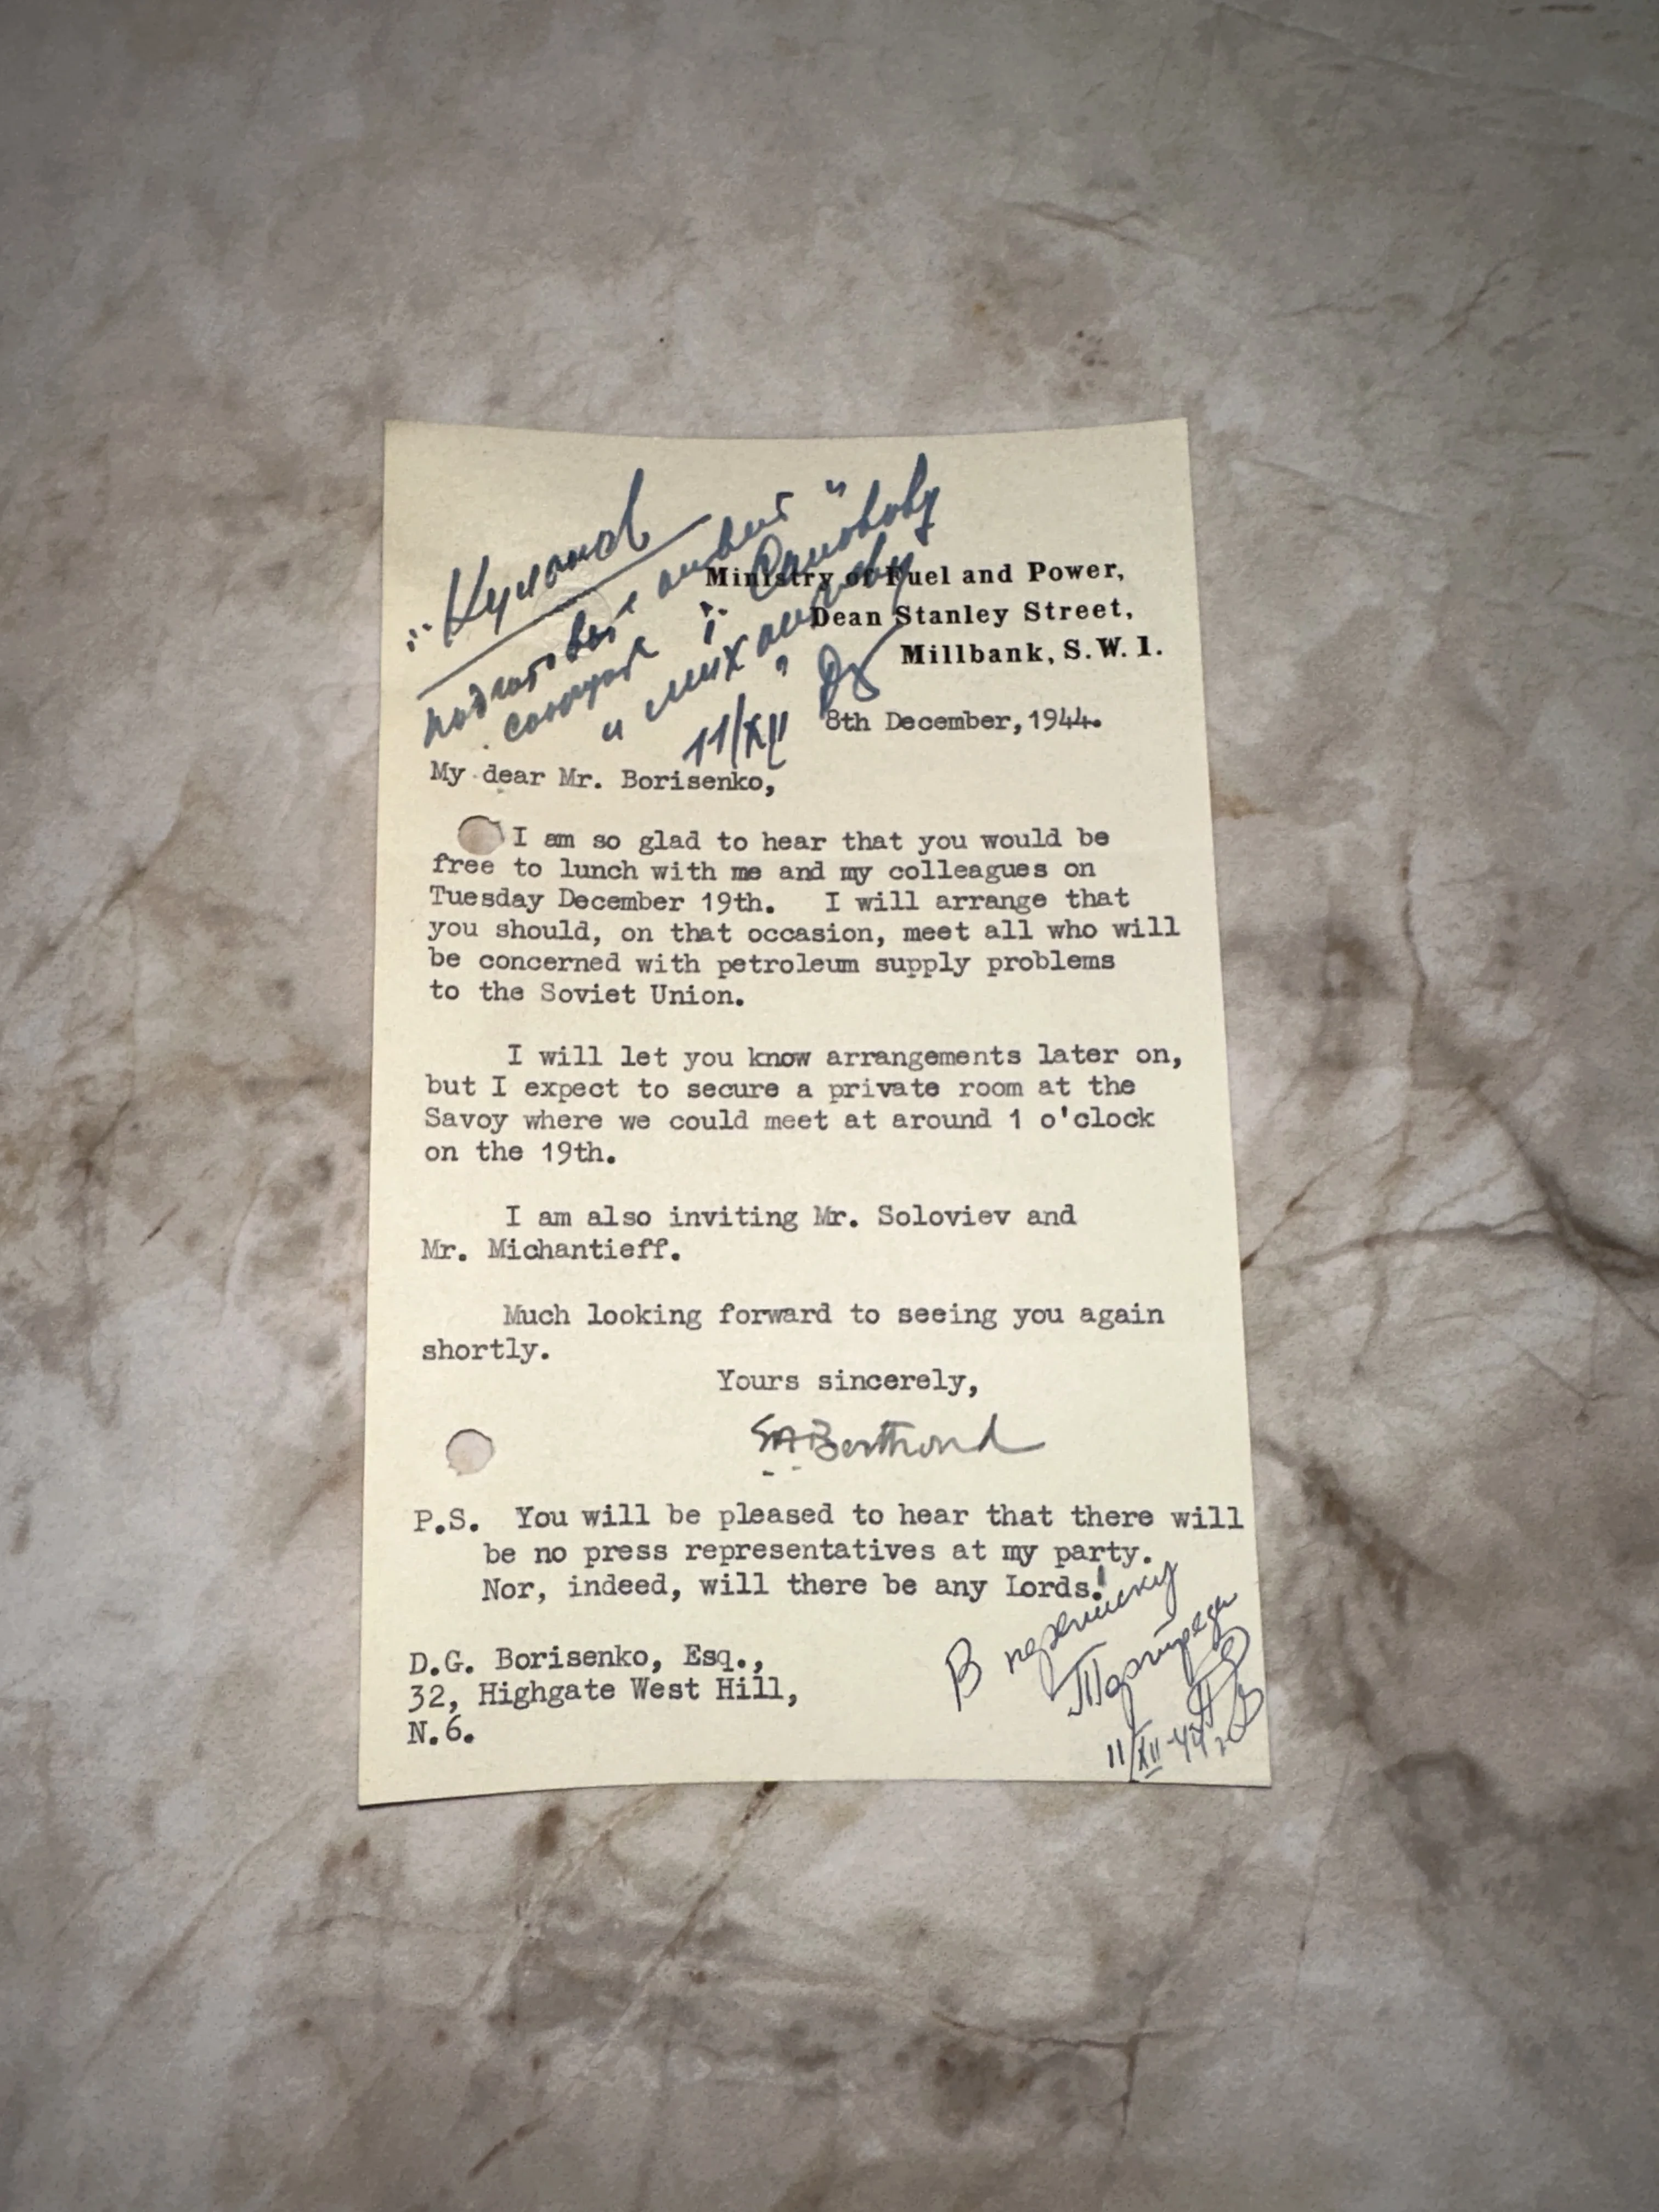 Ministry of Fuel and Power,
Dean Stanley Street,
Millbank, S.W.1.
11/XII
8th December, 1944.
My dear Mr. Borisenko,
I am so glad to hear that you would be
free to lunch with me and my colleagues on
Tuesday December 19th. I will arrange that
you should, on that occasion, meet all who will
be concerned with petroleum supply problems
to the Soviet Union.
I will let you know arrangements later on,
but I expect to secure a private room at the
Savoy where we could meet at around 1 o'clock
on the 19th.
I am also inviting Mr. Soloviev and
Mr. Michantieff.
Much looking forward to seeing you again
shortly.
Yours sincerely,
P.S. You will be pleased to hear that there will
be no press representatives at my party.
Nor, indeed, will there be any Lords!
В переписку
Торгпреда
11/XII-44г.
D.G. Borisenko, Esq.,
32, Highgate West Hill,
N.6.